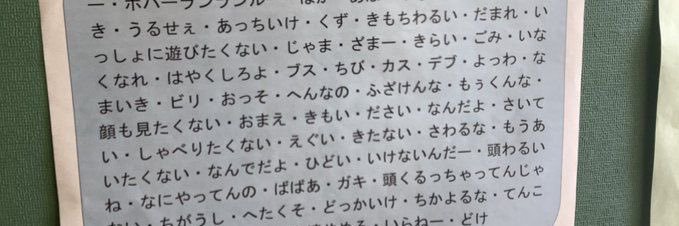 き・うるせぇ・あっちいけ・くず・きもちわるい・だまれ・い
っしょに遊びたくない・じゃま・ざまー・きらい・ごみ・いな
くなれ・はやくしろよ・ブス・ちび・カス・デブ・よっわ・な
まいき・ビリ・おっそ・へんなの・ふざけんな・もぅくんな・
顔も見たくない・おまえ・きもい・ださい・なんだよ・さいて
い・しゃべりたくない・えぐい・きたない・さわるな・もうあ
いたくない・なんでだよ・ひどい・いけないんだー・頭わるい
ね・なにやってんの・ばばあ・ガキ・頭くるっちゃってんじゃ
ない・ちがうし・へたくそ・どっかいけ・ちかよるな・てんこ
いらねー・どけ